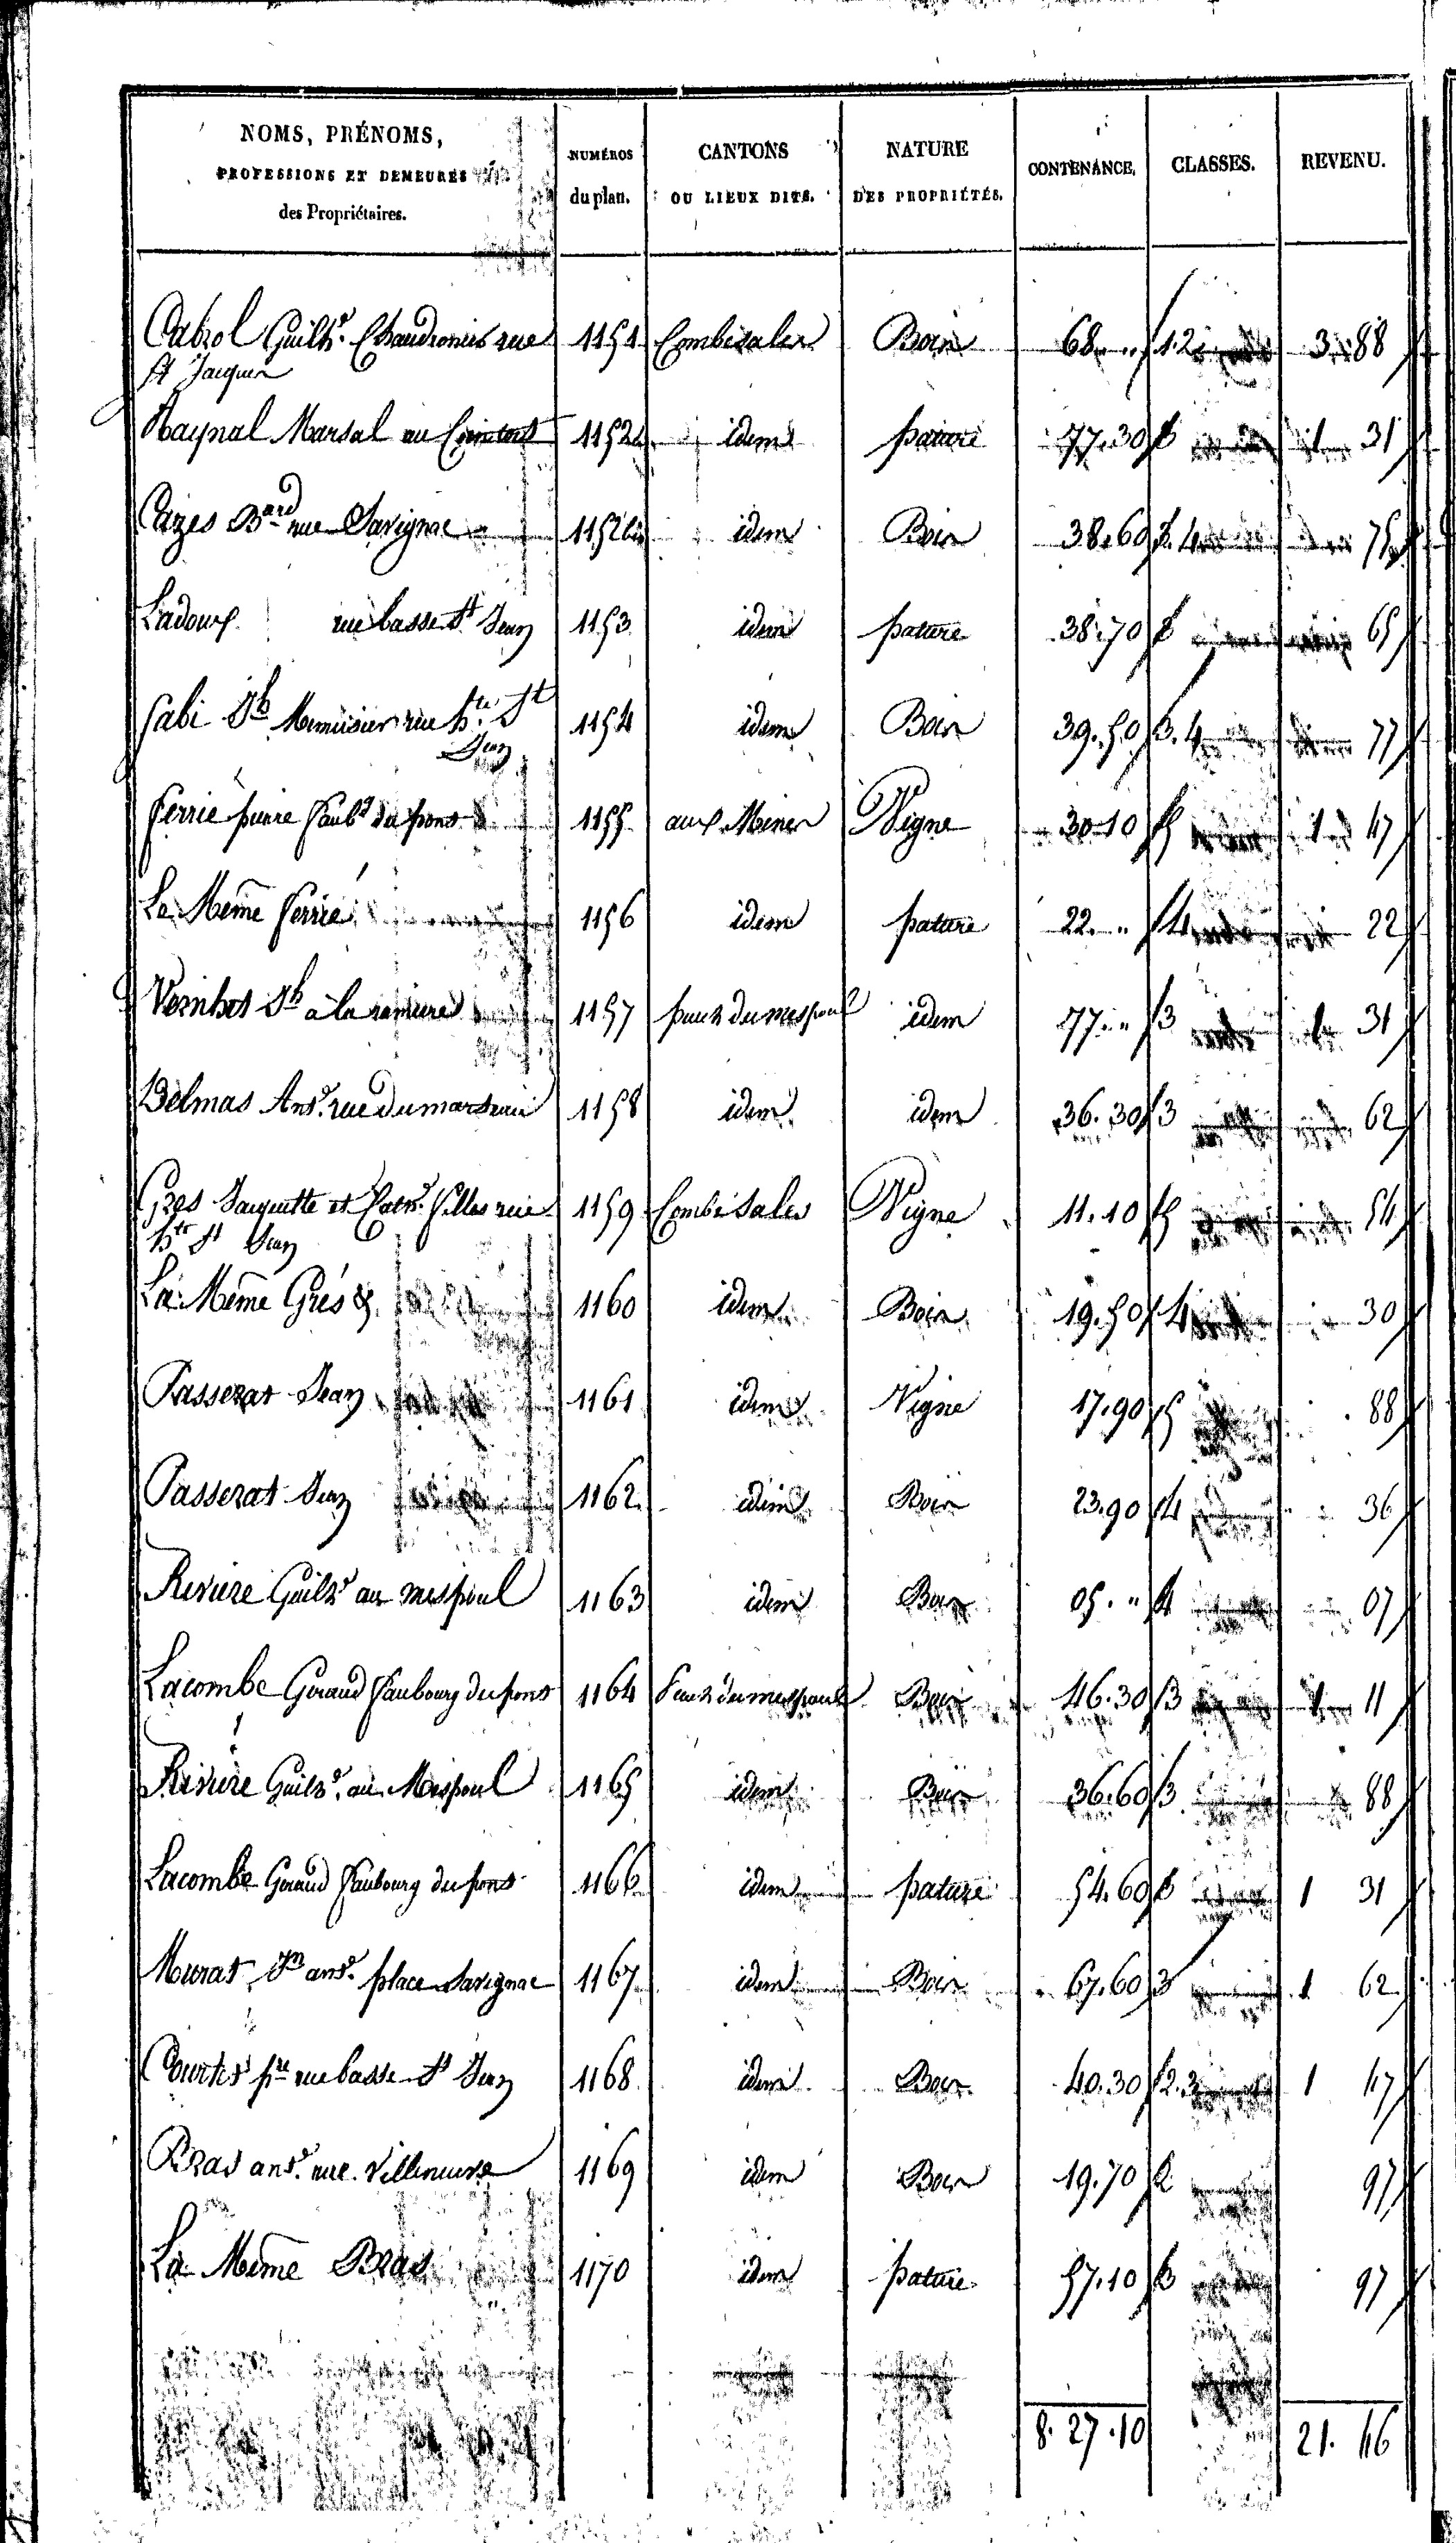 NOMS, PRÉNOMS,
PROFESSIONS ET DEMEURES
des Propriétaires.
NUMÉROS
du plan.
CANTONS
OU LIEUX DITS.
NATURE
DES PROPRIÉTÉS.
CONTENANCE.
CLASSES.
REVENU.
Cabrol Guilh.e Chaudronier rue 1151 Combesales Bois 68. " 1.2 3. 88
St Jacques
Raynal Marsal au 1152 idem pature 77.30 3 1 31
Cazes B.ard rue Savignac 1152 bis idem Bois 38.60 3.4 75
Ladoux rue basse St Jean 1153 idem pature 38.70 3 65
Gabi Jh Menuisier rue h.te St 1154 idem Bois 39.50 3.4 77
Jean
Ferrié pierre faub.g du pont 1155 aux Mines Vigne 30.10 5 1 47
Le Même Ferrié 1156 idem pature 22. " 4 22
Vernhet Jh à la ramiere 1157 puech du mespoul idem 77. " 3 1 31
Delmas Ant.e rue du marteau 1158 idem idem 36.30 3 62
Gres Jaquette et Cath.e filles rue 1159 Combesales Vigne 11.10 5 54
h.te St Jean
La Même Grés & 1160 idem Bois 19.50 4 30
Passerat Jean 1161 idem Vigne 17.90 5 88
Passerat Jean 1162 idem Bois 23.90 4 36
Riviere Guilh.e au mespoul 1163 idem Bois 05. " 4 07
Lacombe Geraud faubourg du pont 1164 Puech du mespoul Bois 46.30 3 1 11
Riviere Guilh.e au Mespoul 1165 idem Bois 36.60 3 88
Lacombe Geraud faubourg du pont 1166 idem pature 54.60 3 1 31
Murat Jn ant.e place Savignac 1167 idem Bois 67.60 3 1 62
Courtes p.re rue basse St Jean 1168 idem Bois 40.30 2.3 1 47
Bras ant.e rue Villeneuve 1169 idem Bois 19.70 2 97
Le Même Bras 1170 idem pature 57.10 3 97
8. 27.10 21. 46